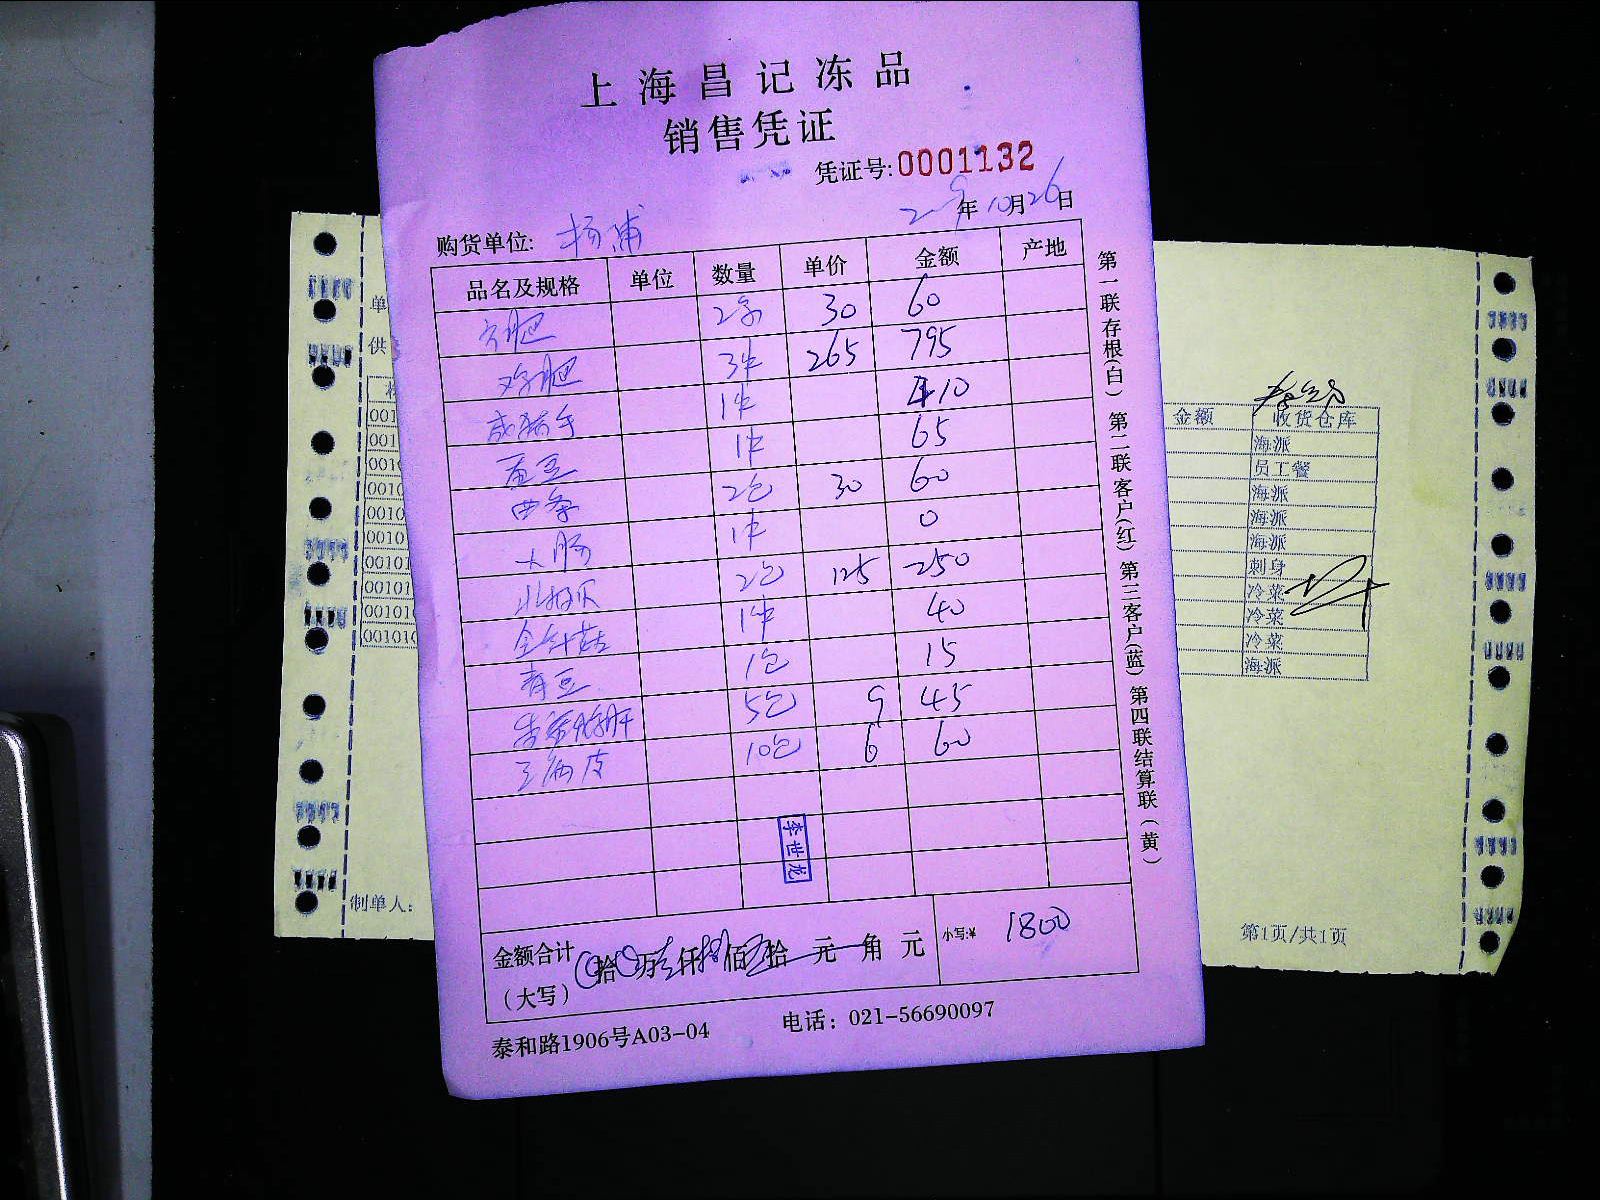 上海昌记冻品
销售凭证
凭证号:0001132
年10月26日
购货单位: 杨浦
品名及规格 单位 数量 单价 金额 产地
2条 30 60
3件 265 795
1件 410
黄豆 1件 65
2包 30 60
大肠 1件 0
北极贝 2包 125 250
金针菇 1件 40
青豆 1包 15
5包 9 45
豆腐皮 10包 6 60
李世龙
金额合计 拾 万 仟 佰 拾 元 角 元 小写:¥ 1800
(大写)
泰和路1906号A03-04 电话: 021-56690097
第一联存根(白) 第二联客户(红) 第三客户(蓝) 第四联结算联(黄)
单
供
001
001
0010
0010
0010
00101
00101
001010
001010
制单人:
金额 收货仓库
海派
员工餐
海派
海派
海派
刺身
冷菜
冷菜
冷菜
海派
第1页/共1页